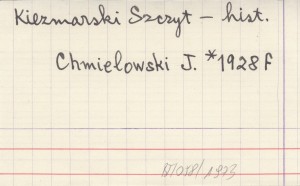 Kiezmarski Szczyt – hist.
Chmielowski J. *1928 F
/1973